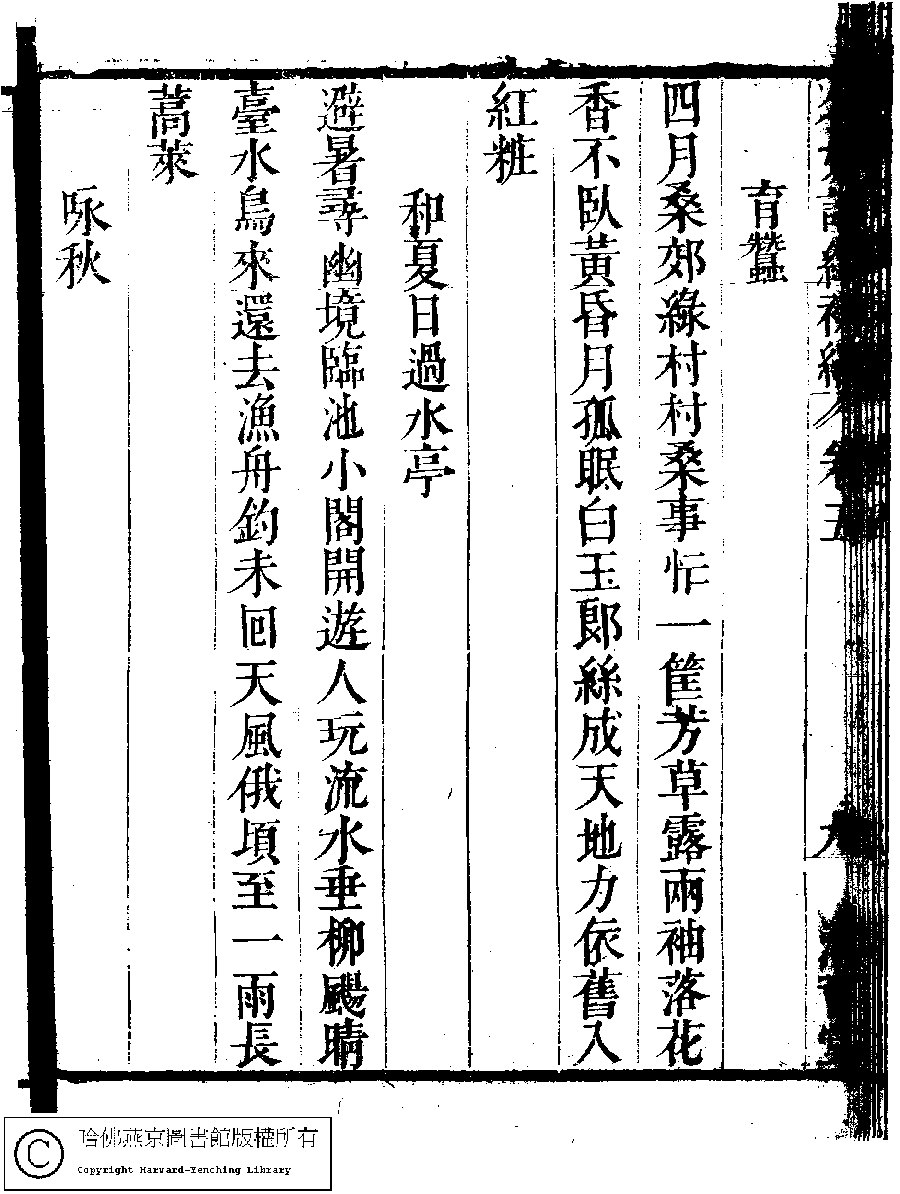 育蠶
四月桑郊綠村村桑事忙一筐芳草露兩袖落花
香不臥黃昏月孤眠白玉郎絲成天地力依舊入
紅粧
和夏日過水亭
避暑尋幽境臨池小閣開遊人玩流水垂柳颺晴
臺水鳥來還去漁舟釣未回天風俄頃至一雨長
蒿萊
咏秋
哈佛燕京圖書館版權所有
Copyright Harvard-Yenching Library